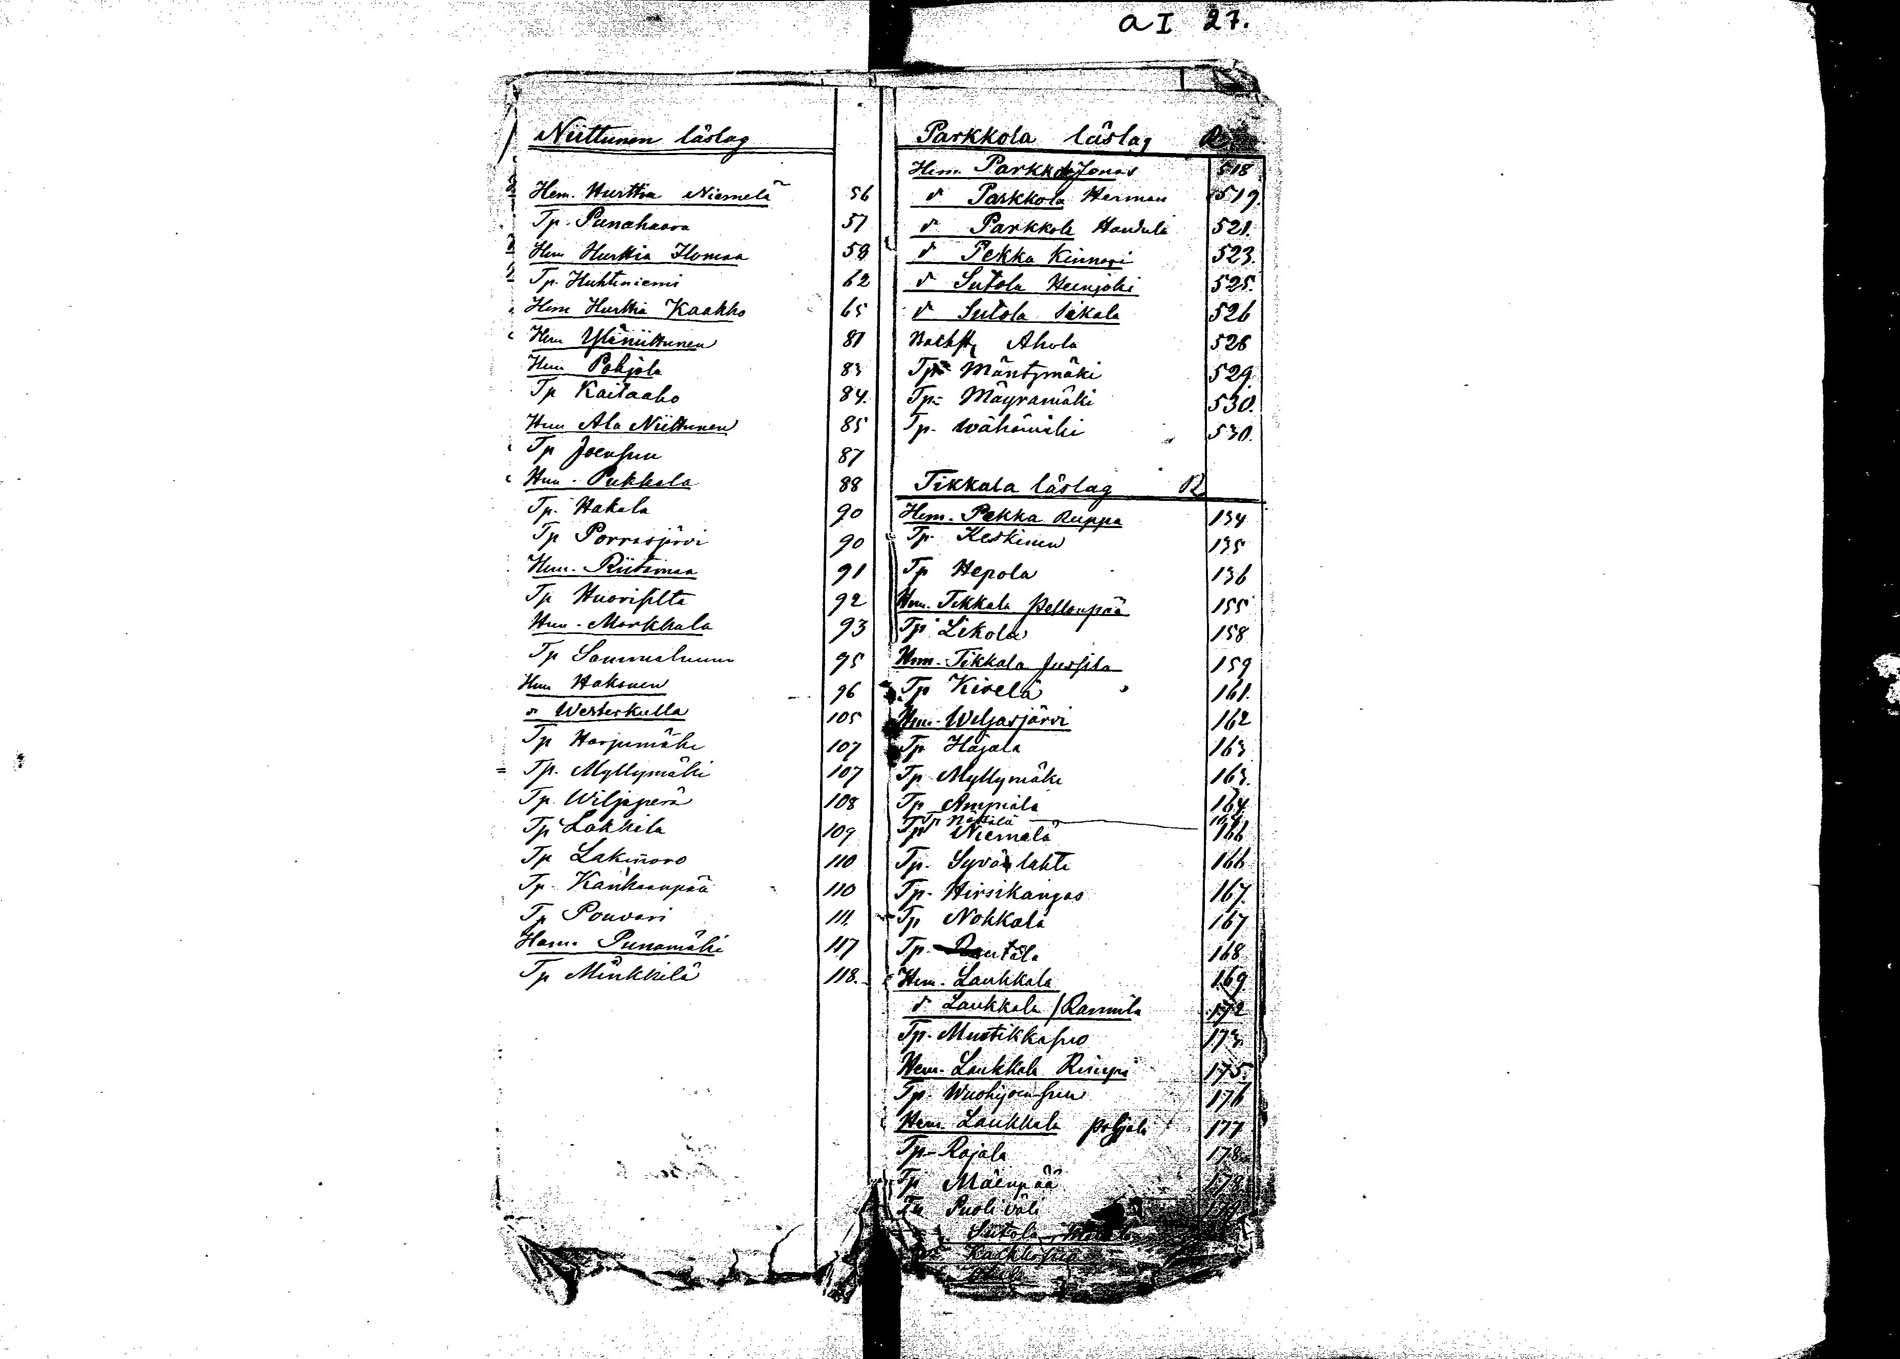 a I 27.
Niittunen läslag
Hem. Hurttia Niemelä 56
Tp. Punahaara 57
Hem Hurttia Ilomaa 58
Tp. Huhtiniemi 62
Hem Hurttia Kaakko 65
Hem Yliniittunen 81
Hem Pohjola 83
Tp Kaitaaho 84.
Hem Ala Niittunen 85
Tp Joensuu 87
Hem - Pukkala 88
Tp. Hakala 90
Tp Porrasjärvi 90
Hem. Riitamaa 91
Tp Huorisilta 92
Hem - Markkala 93
Tp 95
Hem Hakonen 96
Westerkulla 105
Tp Harjumäki 107
Tp. Myllymäki 107
Tp. Wiljaperä 108
Tp Lakkila 109
Tp Lakinoro 110
Tp. Kankaanpää 110
Tp Pouvari 111.
Hem. Punamäki 117
Tp Minkkilä 118.
Parkkola läslag R
Hem. Parkkola Jonas 518
d Parkkola Herman 519.
d Parkkola 521.
d Pekka Kinnari 523.
d Sutola Heinjoki 525.
d Sutola Sikala 526
Ahola 528
Tp Mäntymäki 529.
Tp- Mäyrämäki 530.
Tp. Wähämäki 530.
Tikkala läslag R
Hem. Pekka Ruppa 134
Tp. Keskinen 135
Tp Hepola 136
Hem. Tikkala Pellonpää 155
Tp Likola 158
Hem. Tikkala Jussila 159
Tp Kivelä 161.
Hem. Wiljasjärvi 162
Tp Hajala 163
Tp Myllymäki 163.
Tp Ampiala 164
Tp Näkälä
Tp Niemelä 166
Tp. Syvälahti 166
Tp. Hirsikangas 167.
Tp Nokkala 167
Tp. Rantala 168
Hem. Laukkala 169.
d Laukkala / Rannila 172
Tp. Mustikkapuo 173.
Hem. Laukkala 175.
Tp. Wuohijoensuu 176
Hem. Laukkala Pohjola 177
Tp Rajala 178
Tp Mäenpää 178
Tp Puoliväli
Sutola